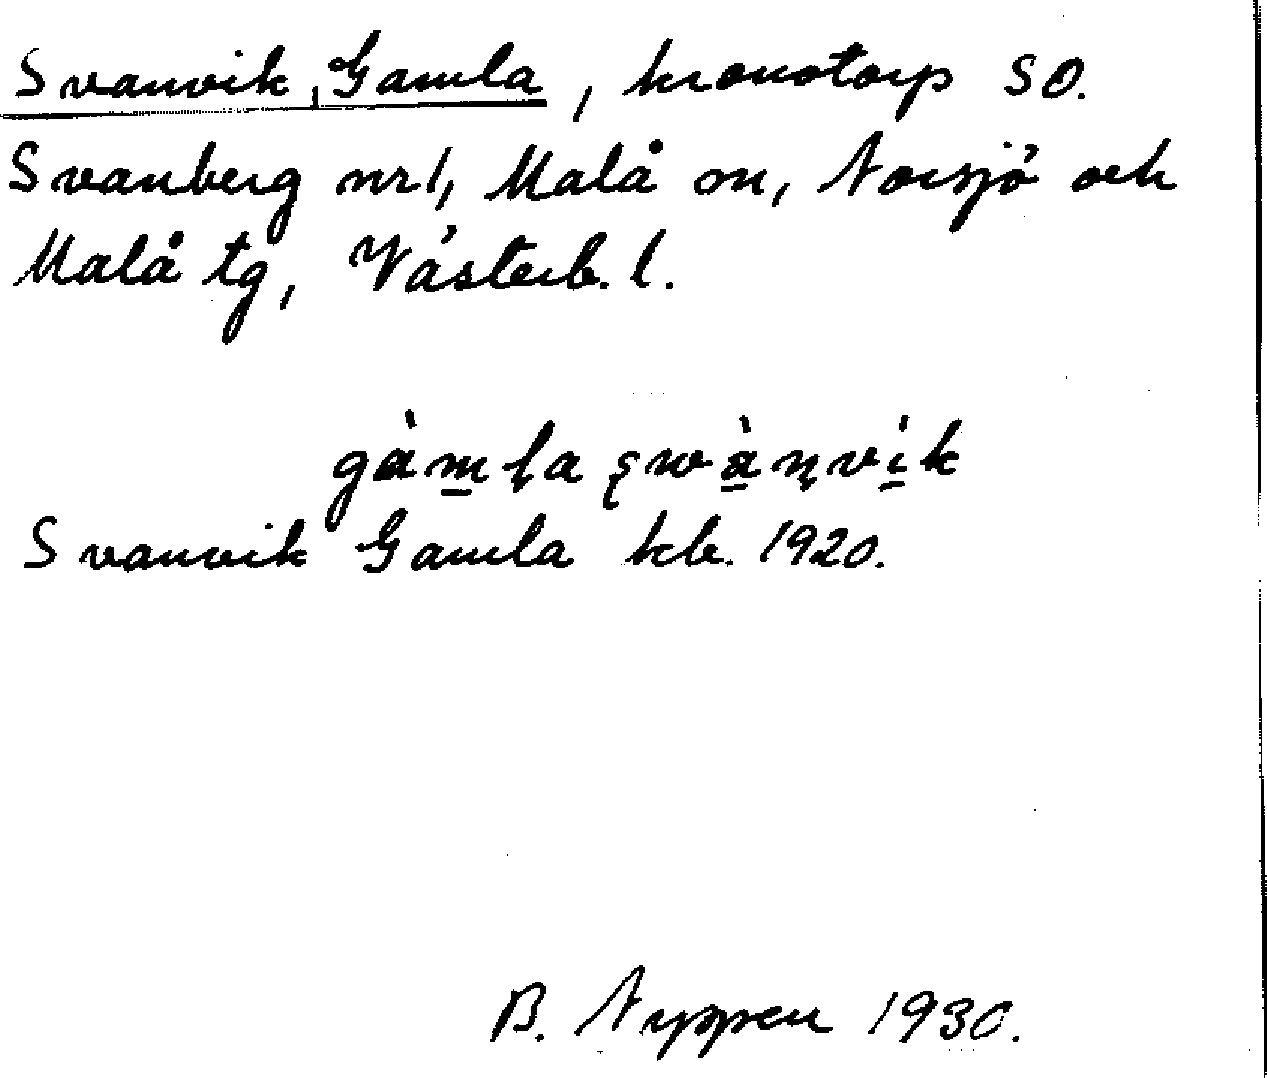 Svanvik, Gamla, kronotorp SO.
Svanberg nr 1, Malå sn, Norsjö och
Malå tg, Västerb. l.
gàm̲la swà̲nvi̲k
Svanvik Gamla kb. 1920.
B. Nyppen 1930.